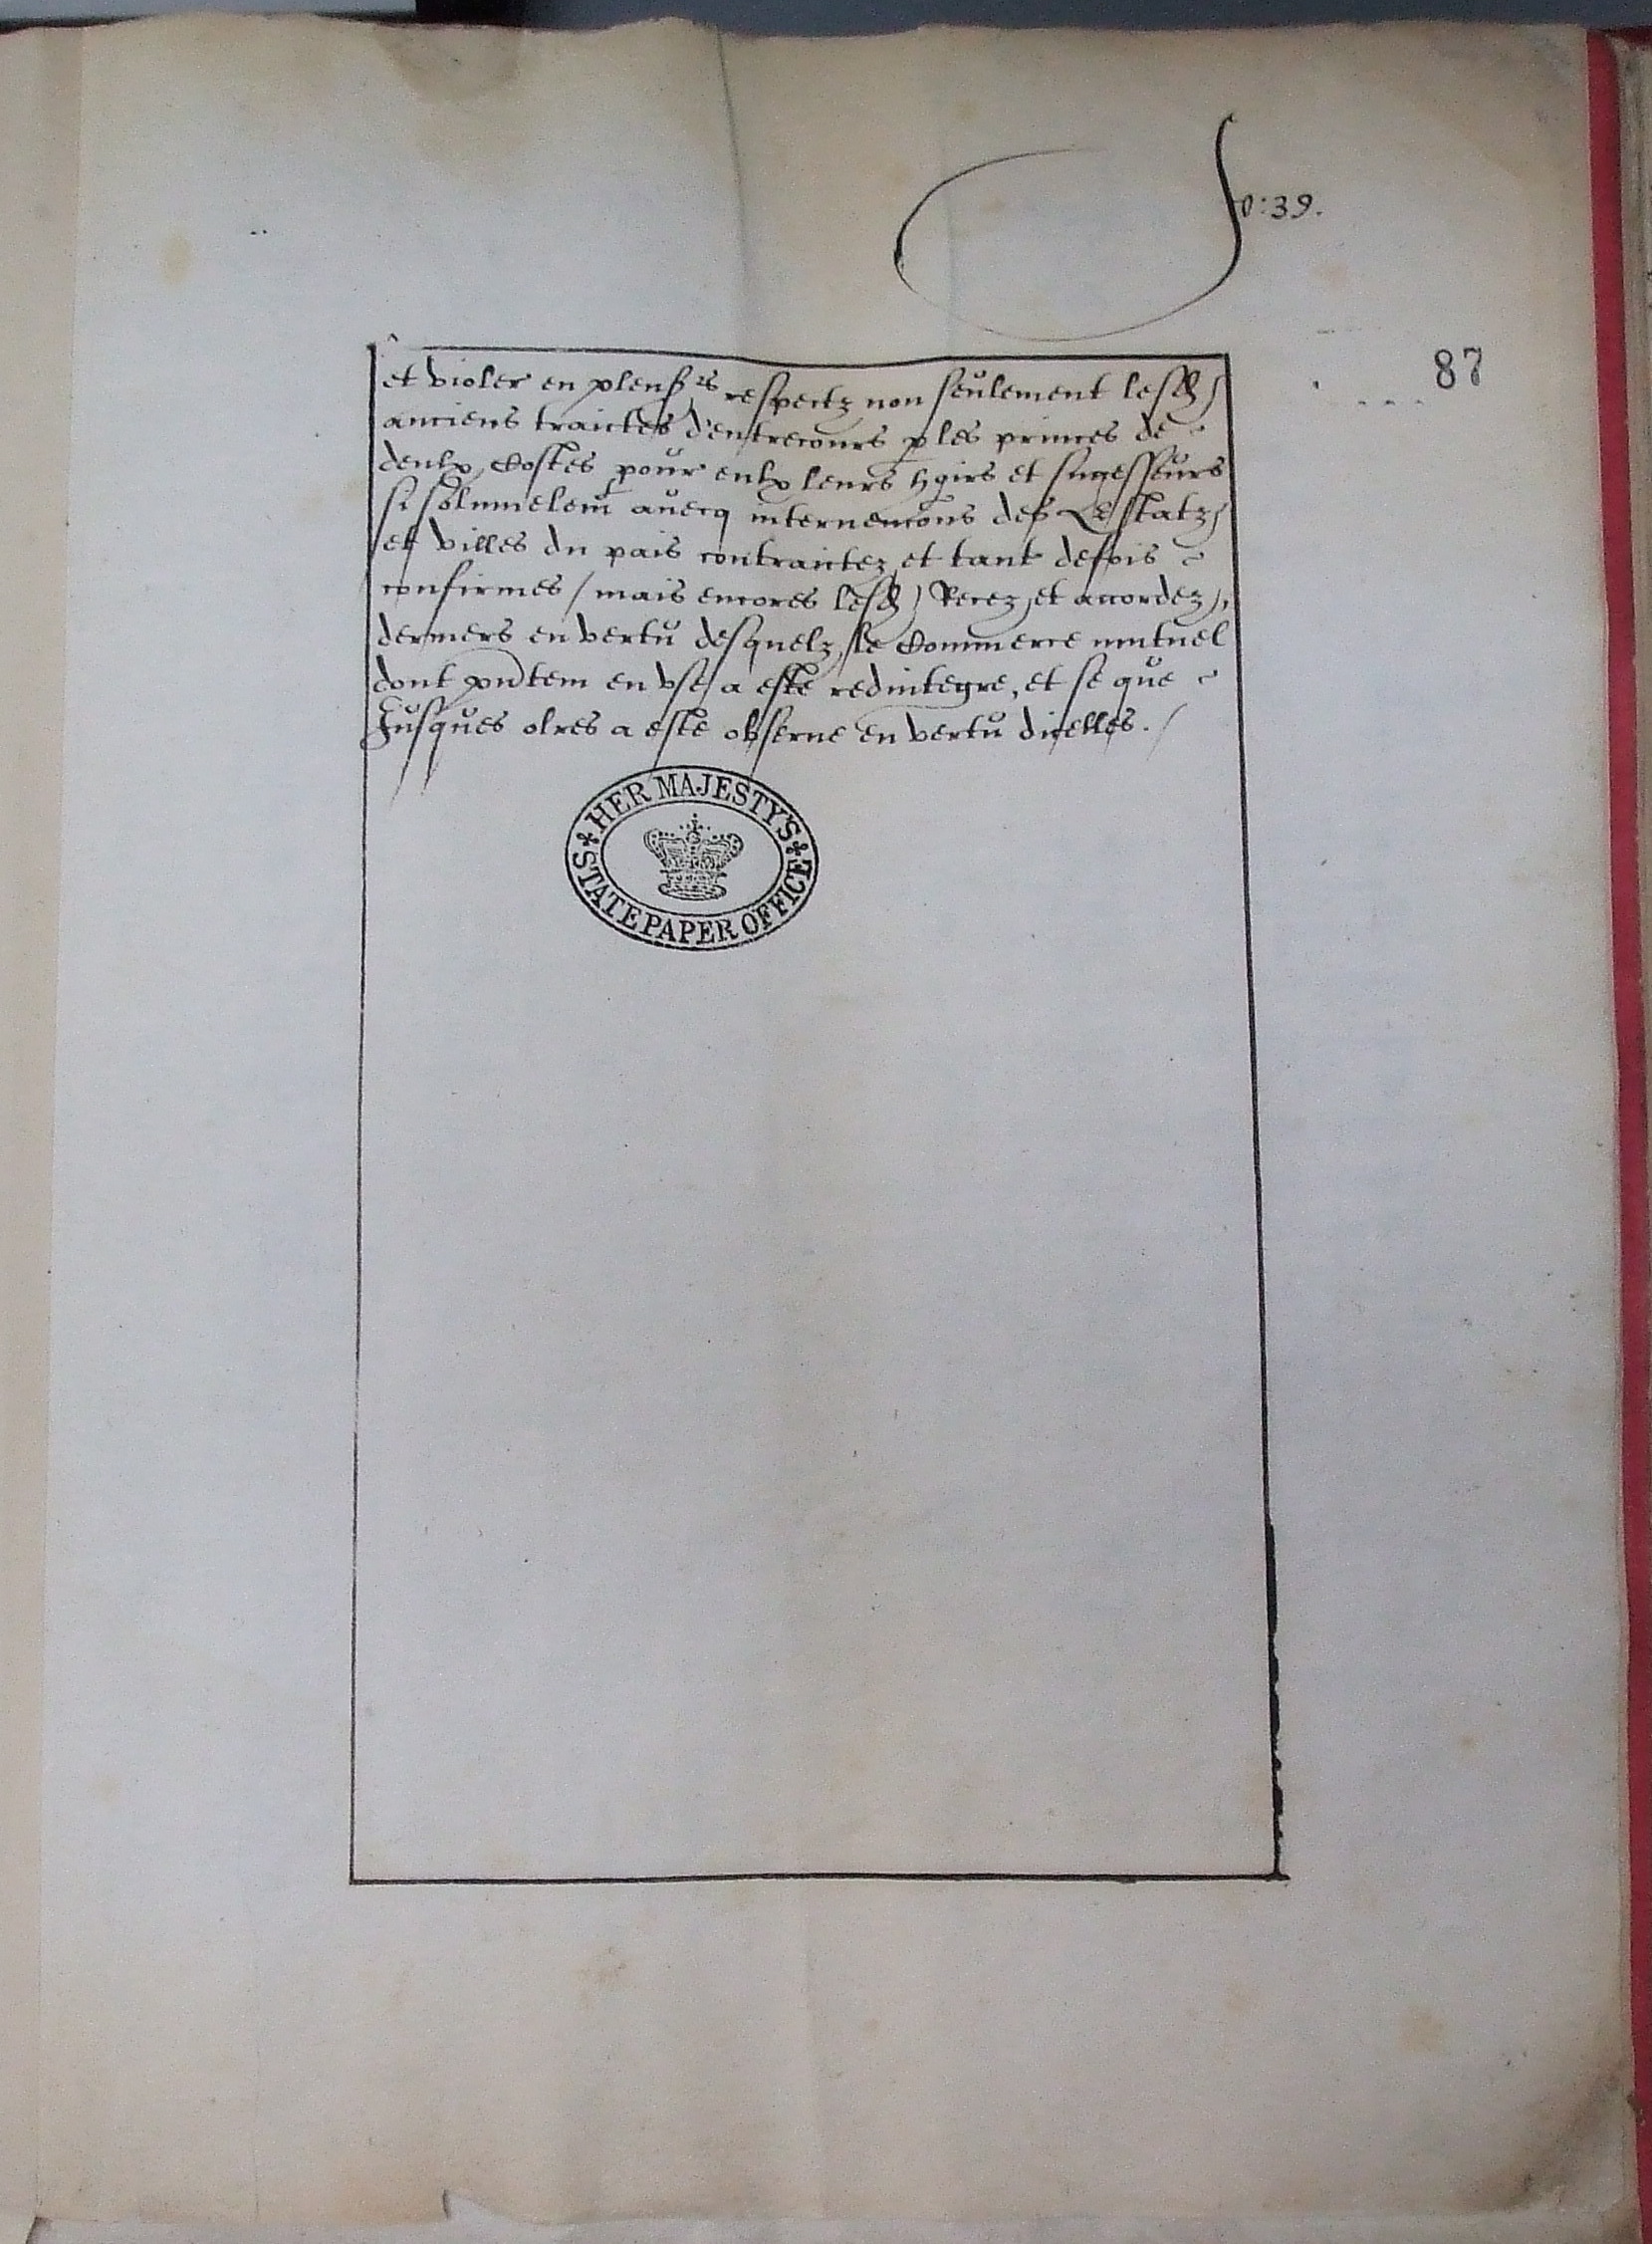 fo: 39.
87
et violer en pleus^rs respectz non seulement lesd)
anciens traictes d'entrecours p les princes de
deulx Costes pour eulx leurs hoirs et sucesseurs
si solmnelemt auecq interuencons des Estatz
et villes du pais contraictez et tant desois
confirmes / mais encores lesd) Recez, et accordez,
derniers en vertu desquelz, le Commerce mutuel
dont pntem en vse a este redintegre, et se que
Jusques olres a este obserue en vertu dicelles . /
HER MAJESTY'S
STATE PAPER OFFICE